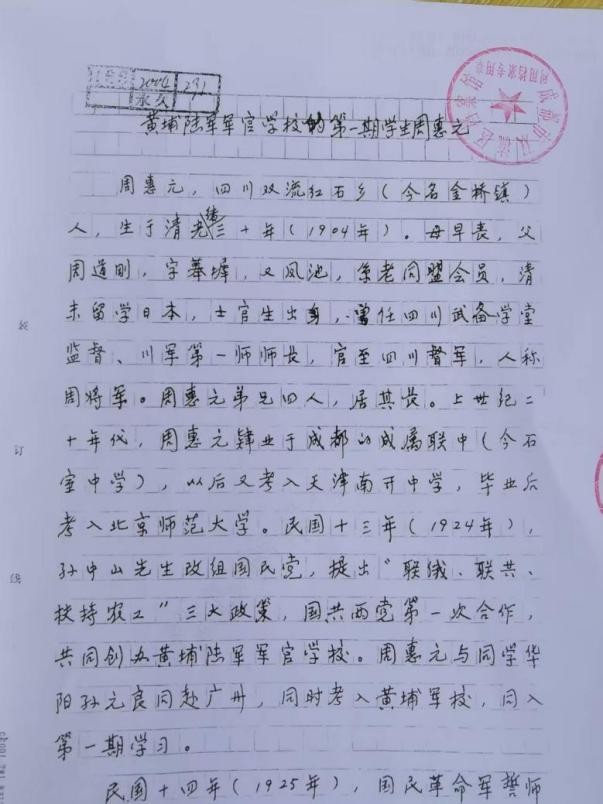 2004 291
永久 1
成都市双流区档案馆
利用档案专用章
黄埔陆军军官学校的第一期学生周惠元
周惠元，四川双流红石乡（今名金桥镇）
人，生于清光绪三十年（1904年）。母早丧，父
周道刚，字㧑墀，又凤池，原老同盟会员，清
末留学日本，士官生出身，曾任四川武备学堂
监督、川军第一师师长，官至四川督军，人称
周将军。周惠元弟兄四人，居其长。上世纪二
十年代，周惠元肄业于成都的成属联中（今石
室中学），以后又考入天津南开中学，毕业后
考入北京师范大学。民国十三年（1924年），
孙中山先生改组国民党，提出“联俄、联共、
扶持农工”三大政策，国共两党第一次合作，
共同创办黄埔陆军军官学校。周惠元与同学华
阳孙元良同赴广州，同时考入黄埔军校，同入
第一期学习。
民国十四年（1925年），国民革命军誓师
装
订
线